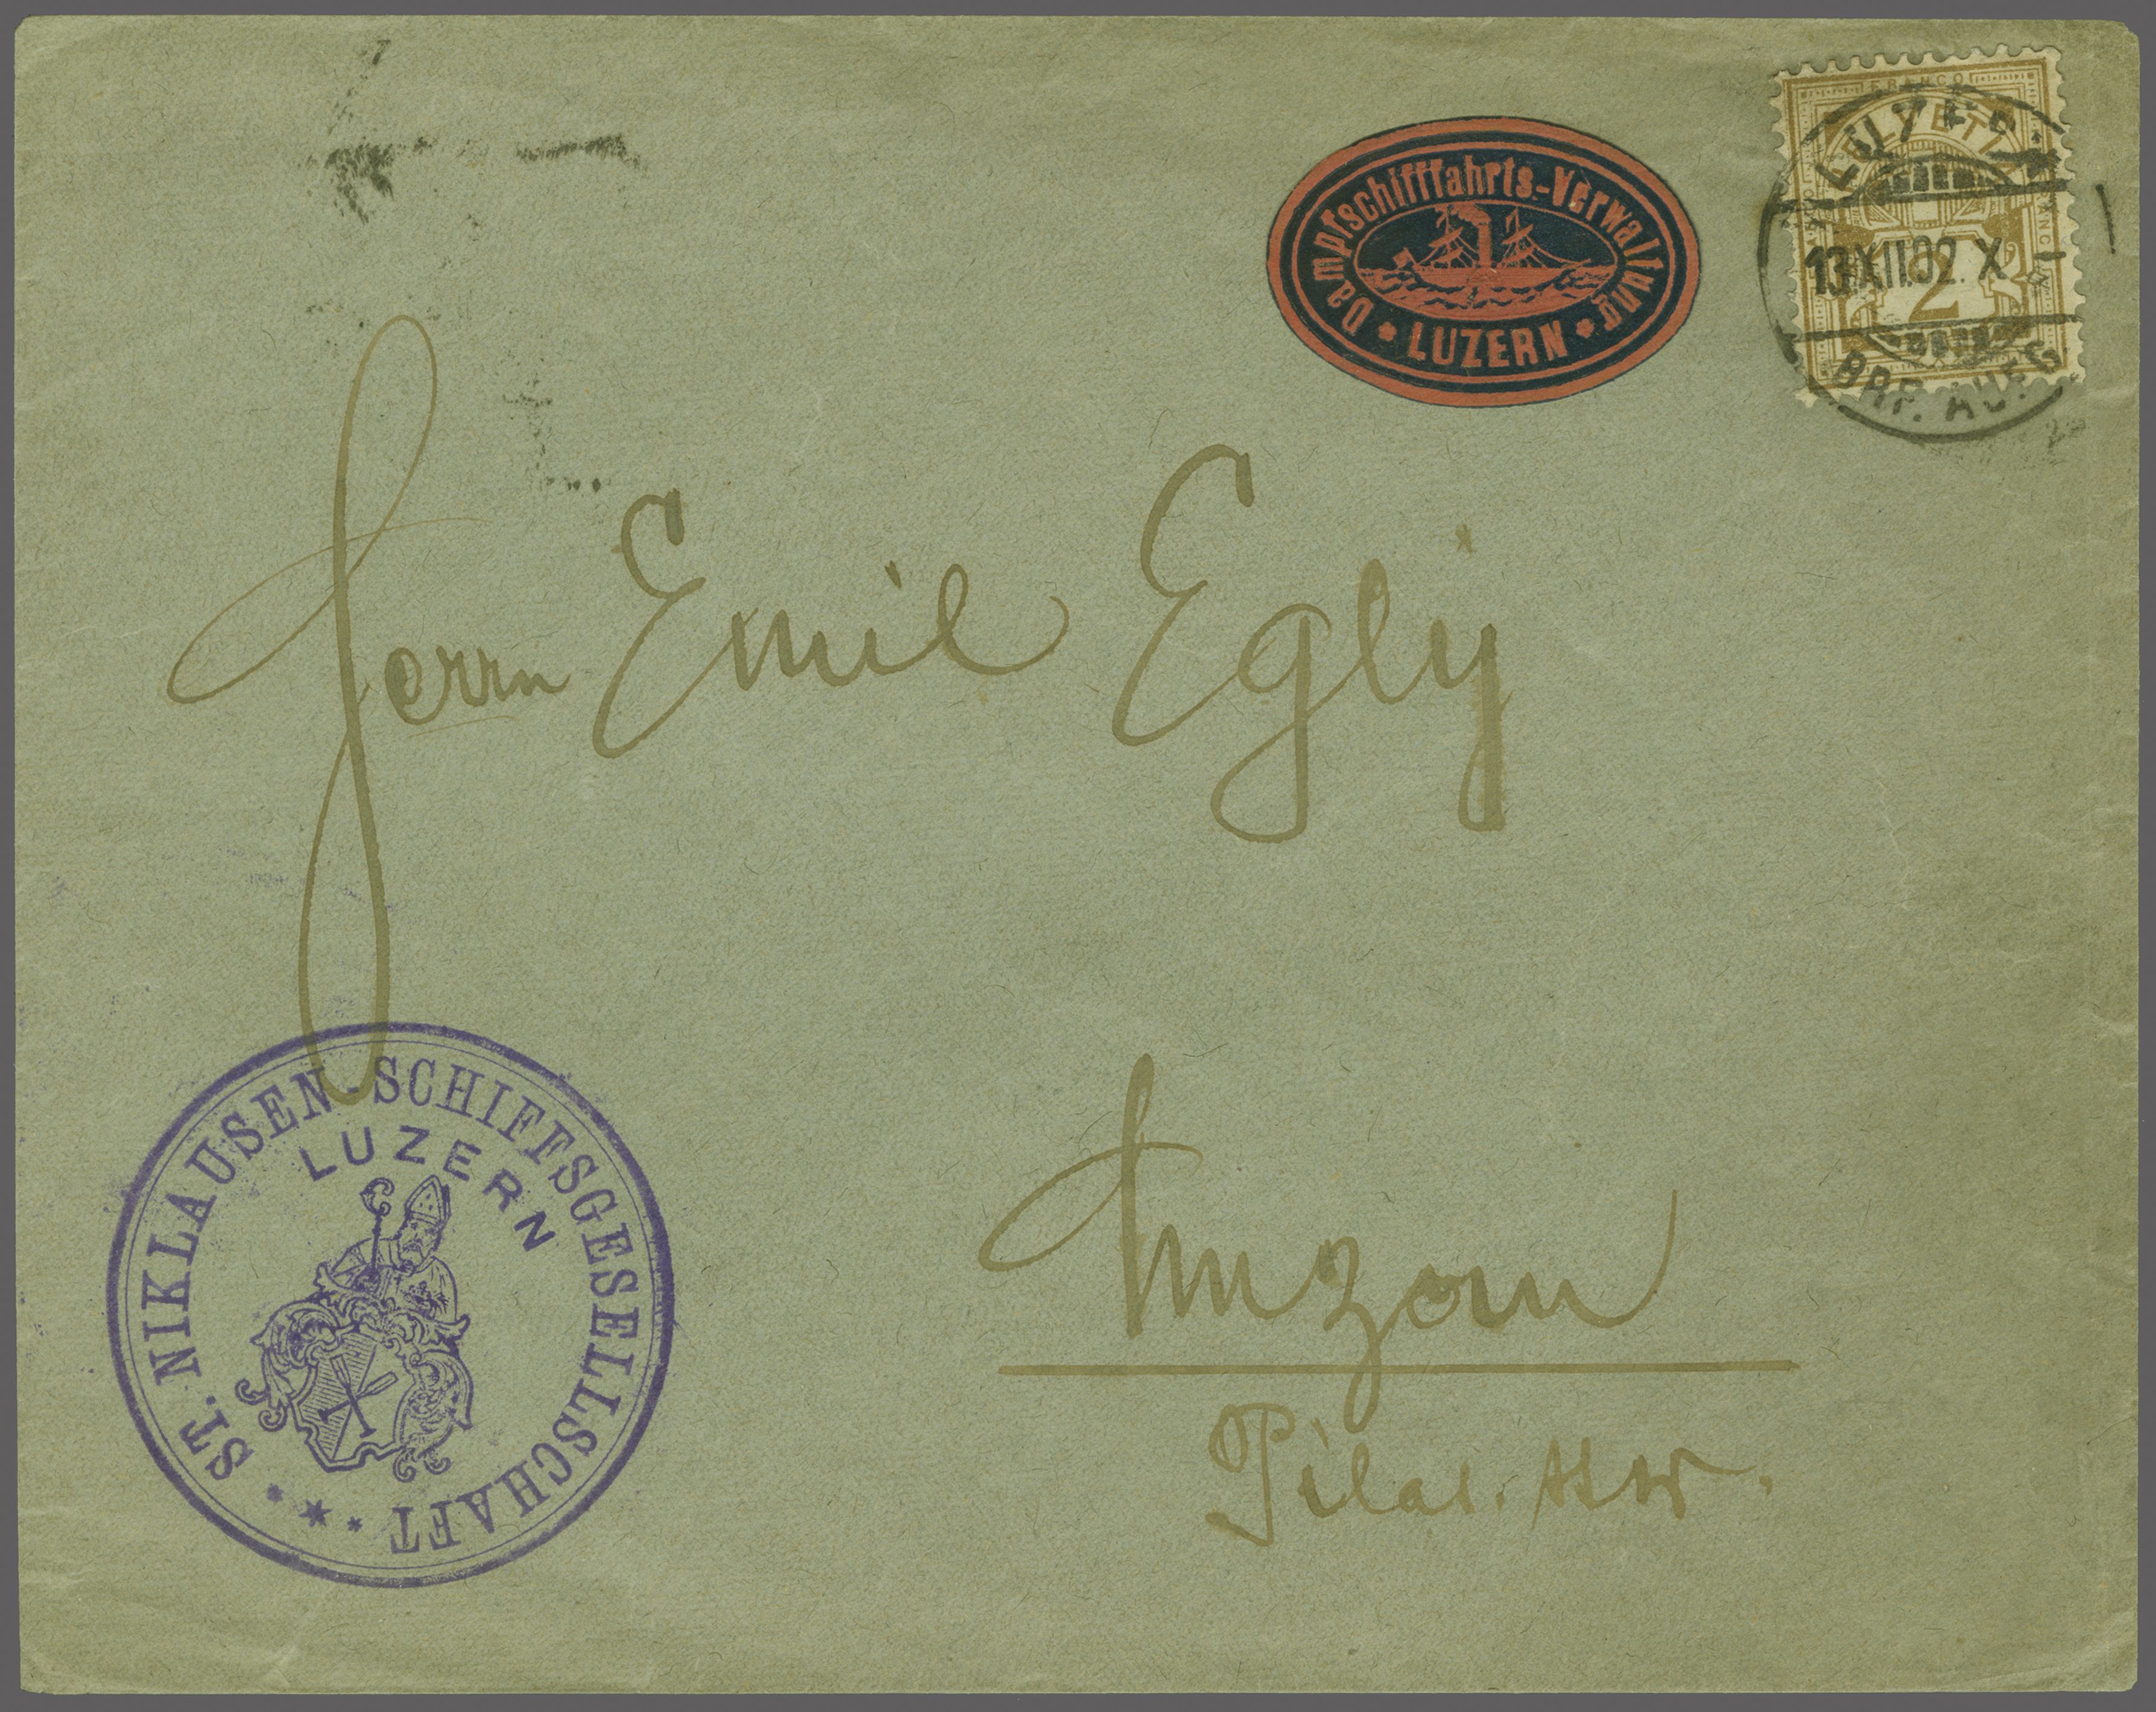 FRANCO
HELVETIA
2
LUZERN
13.XII.02. X
BRF. AUFG
Dampfschifffahrts-Verwaltung
* LUZERN *
Herrn Emil Egly
Luzern
Pilat. str.
ST. NIKLAUSEN-SCHIFFSGESELLSCHAFT
LUZERN